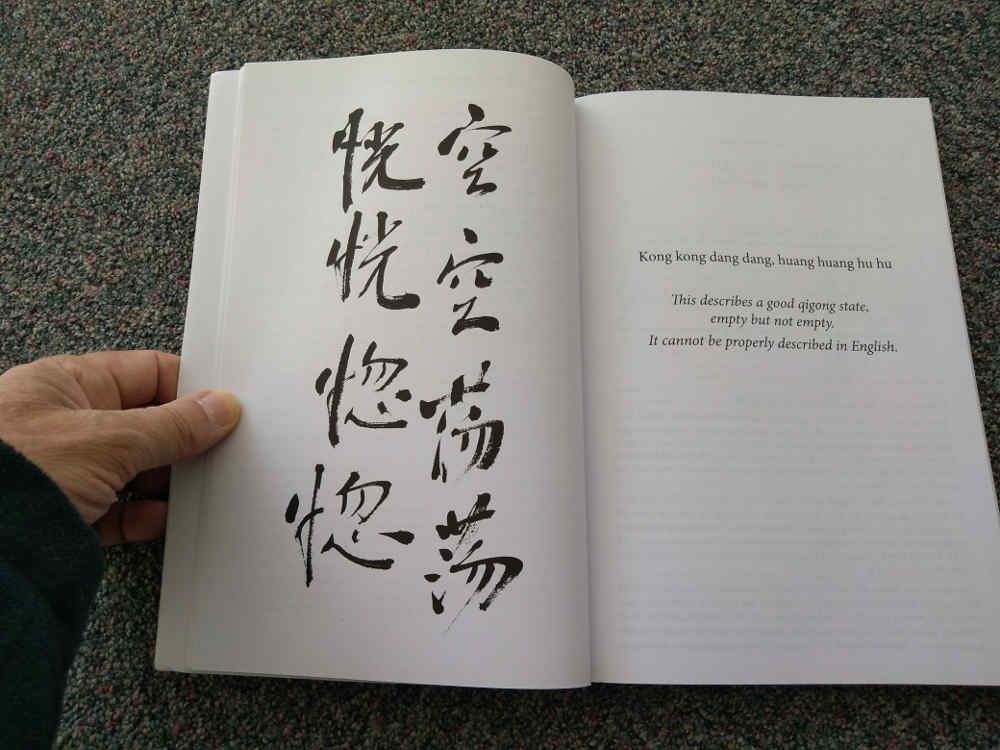 空空荡荡
恍恍惚惚
Kong kong dang dang, huang huang hu hu
This describes a good qigong state,
empty but not empty.
It cannot be properly described in English.